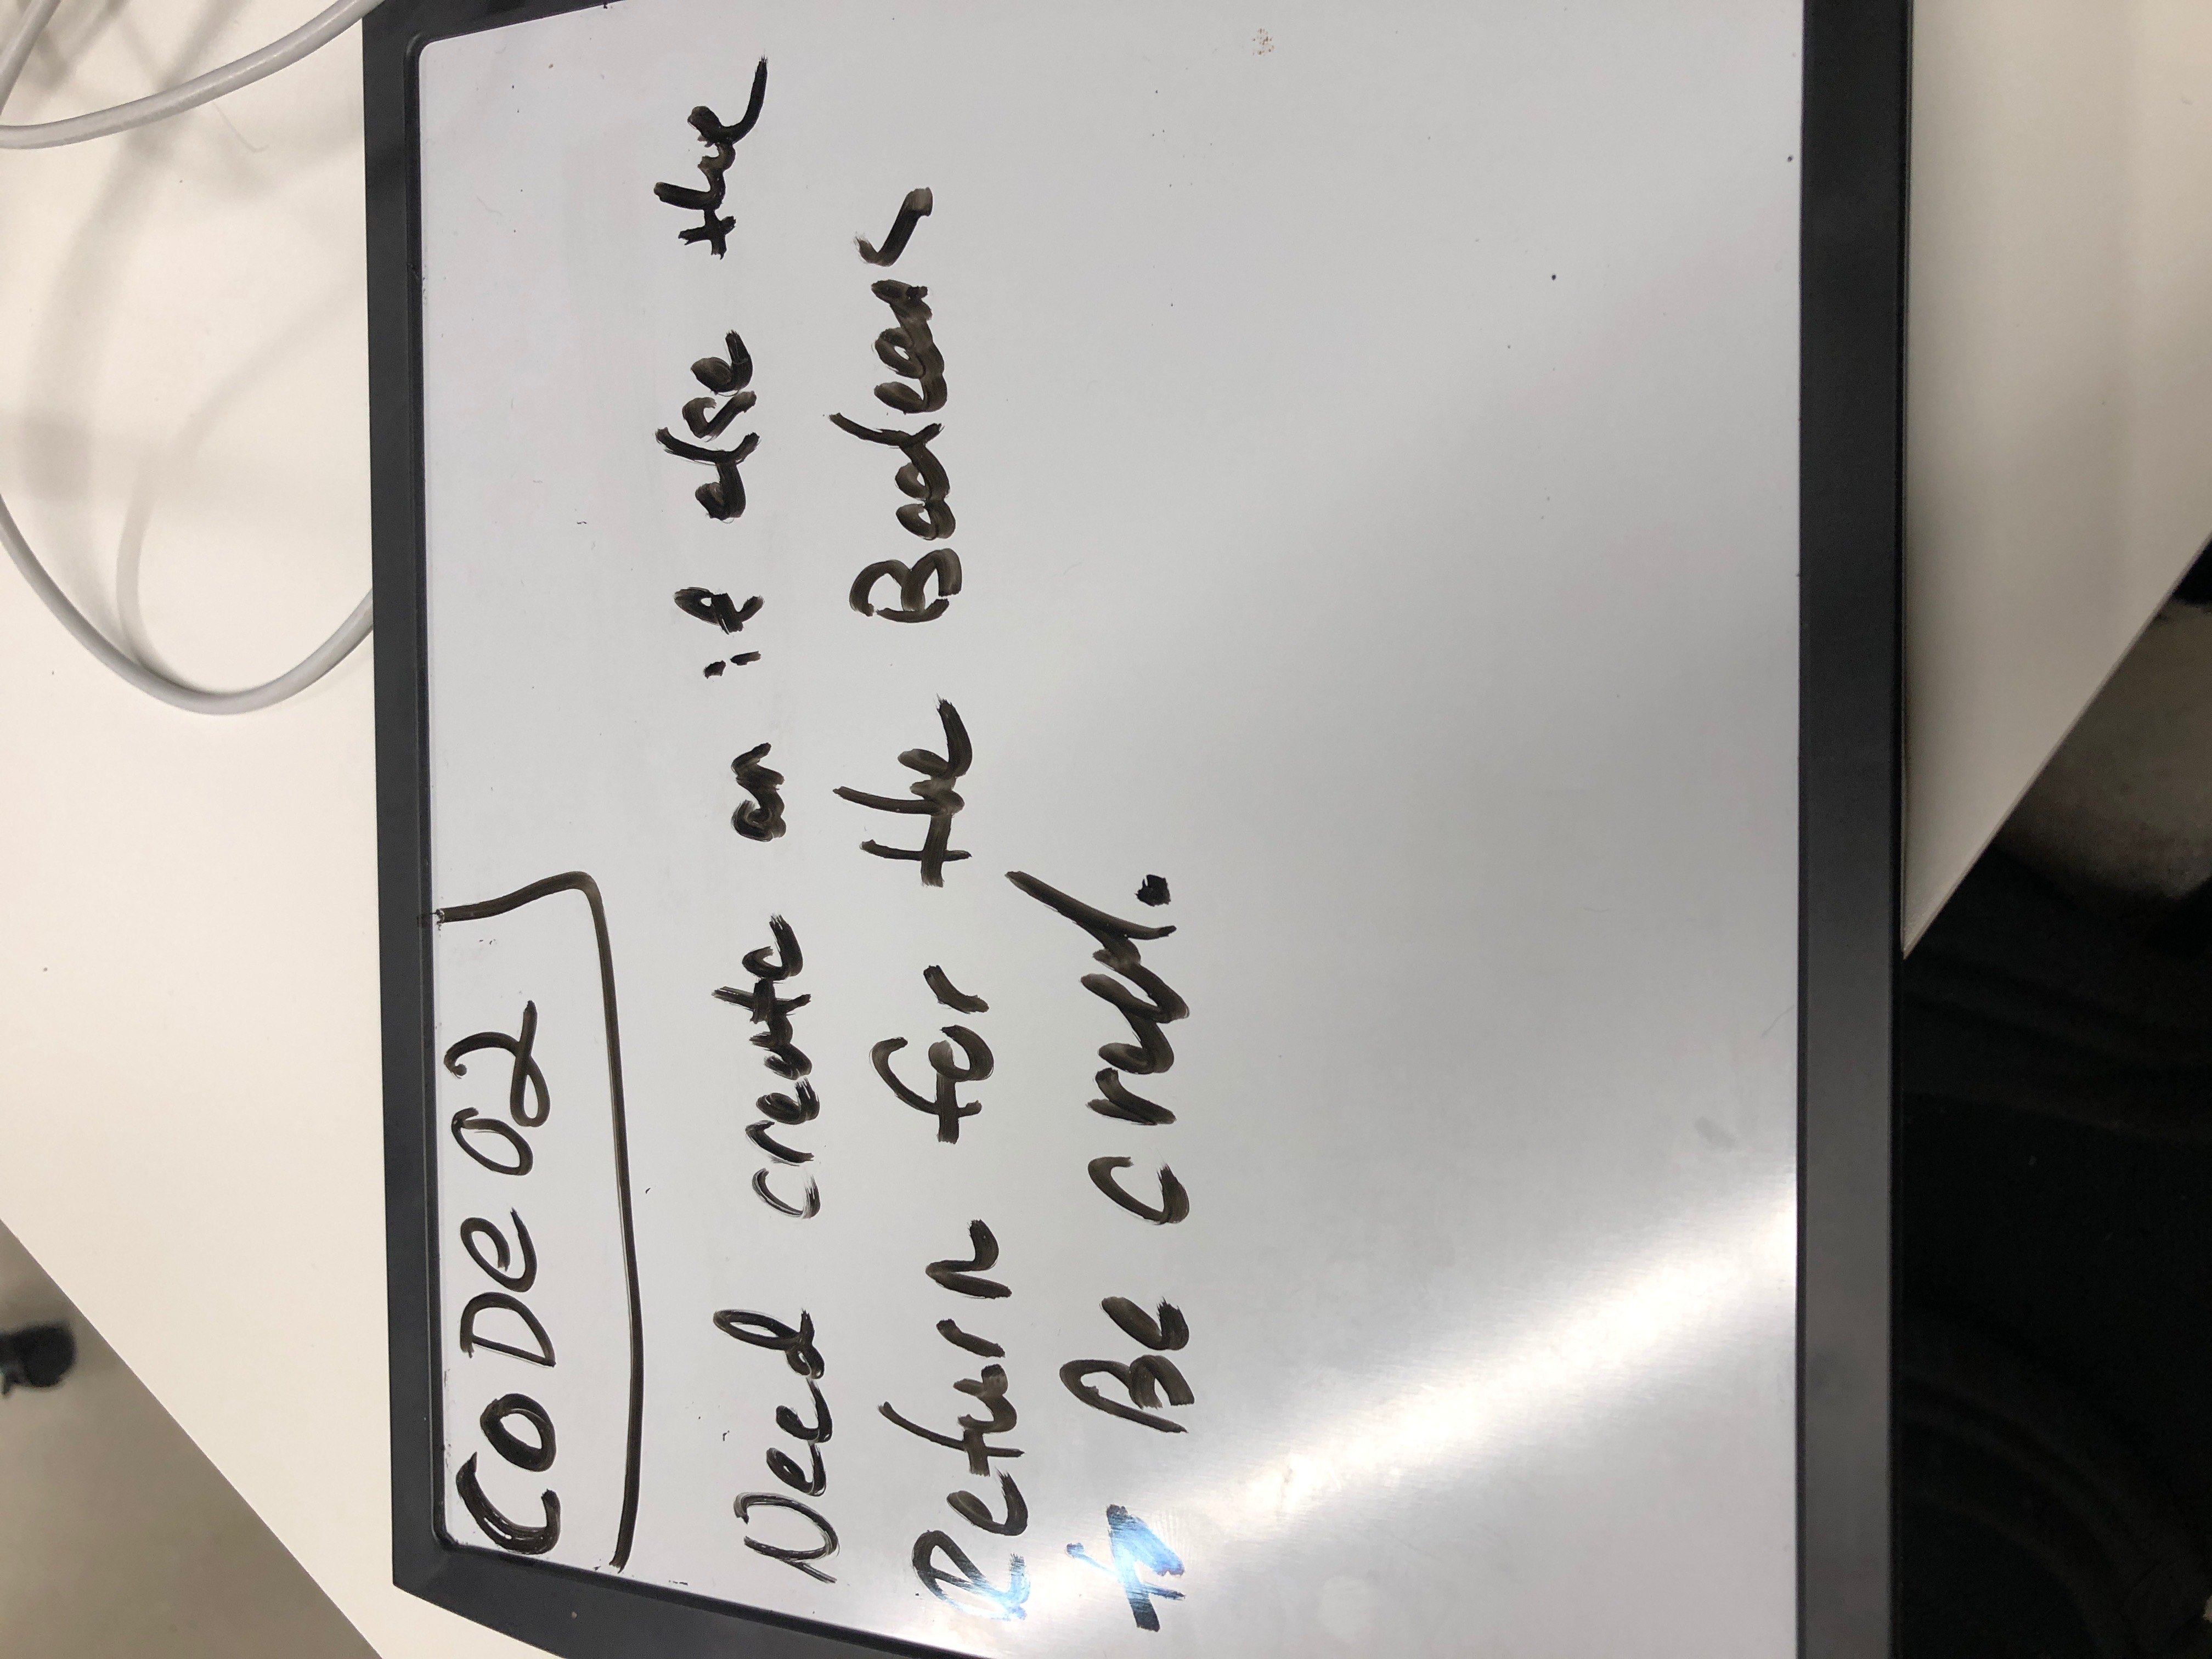 CODe 02
Need create an if else the
Return for the Booleans
to Be